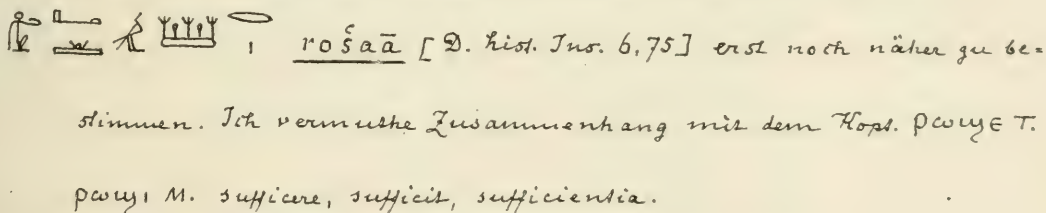 rošaā [D. hist. Ins. 6,75] erst noch näher zu be=
stimmen. Ich vermuthe Zusammenhang mit dem Kopt. ⲣⲱϣⲉ T.
ⲣⲱϣⲓ M. sufficere, sufficit, sufficientia.